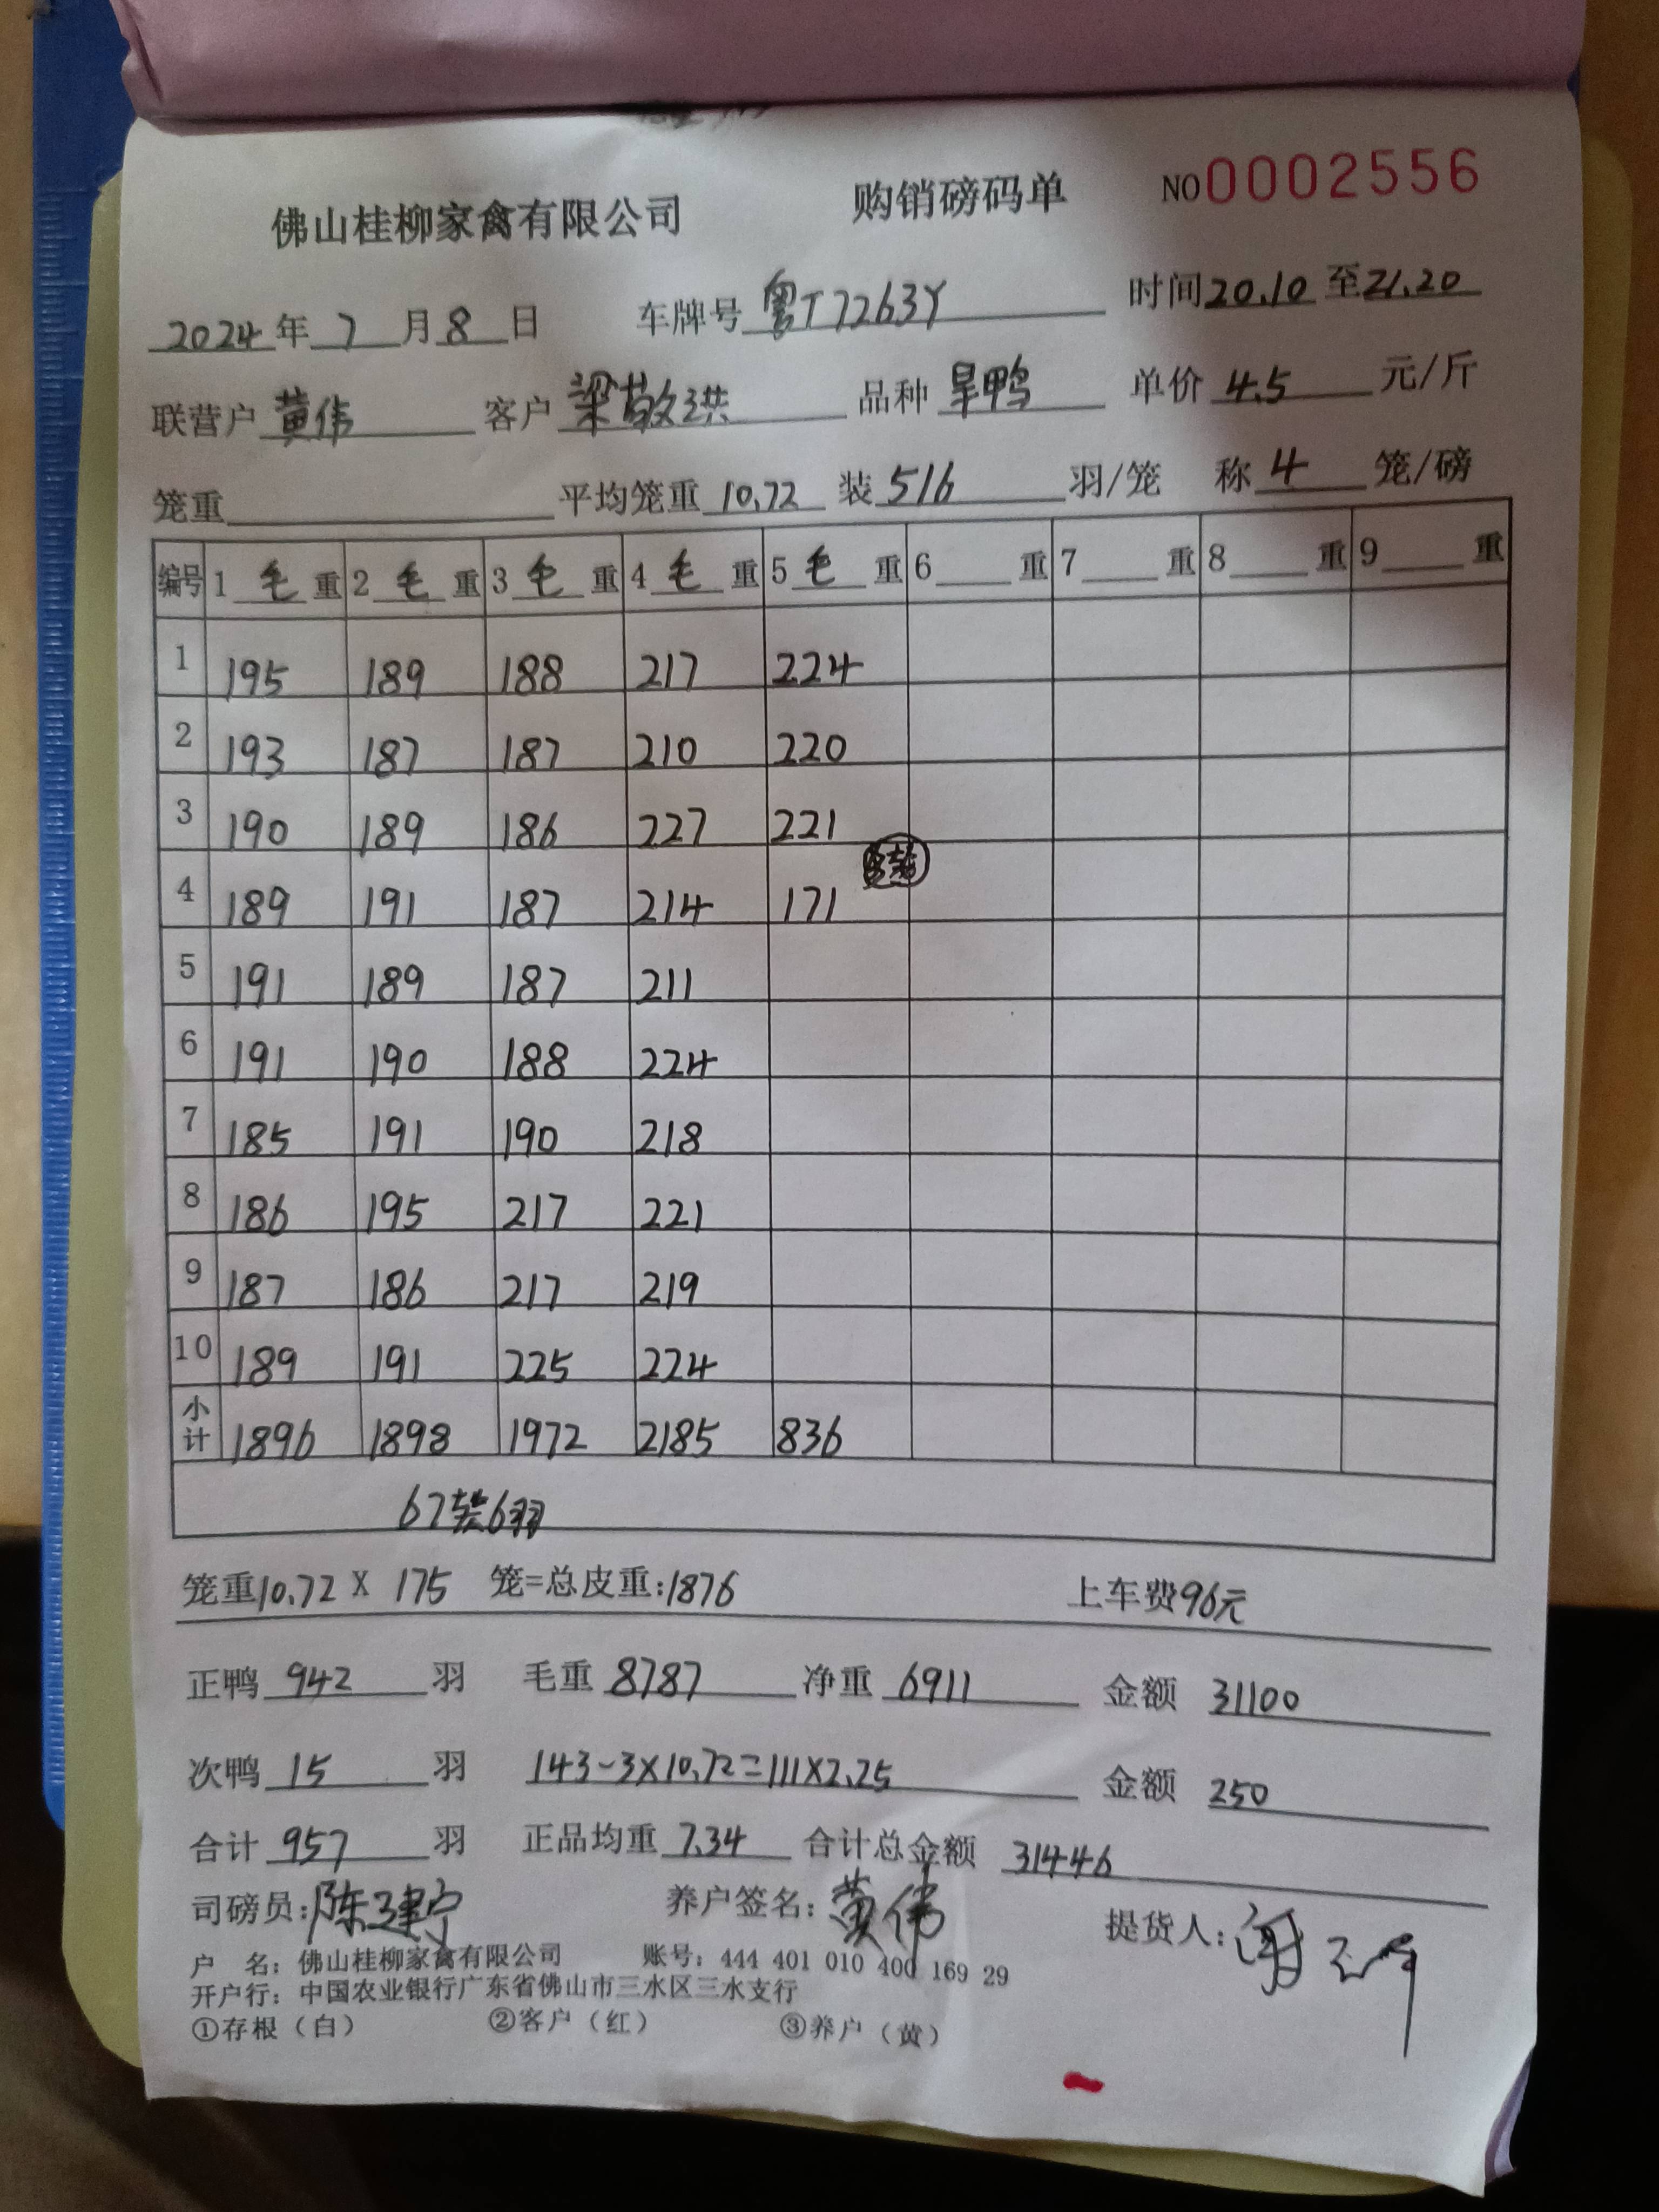 佛山桂柳家禽有限公司 购销磅码单 NO0002556
2024年7月8日 车牌号 粤T7263Y 时间20.10至21.20
联营户 黄伟 客户 梁敬洪 品种 旱鸭 单价 4.5 元/斤
笼重 平均笼重 10.72 装 5/6 羽/笼 称 4 笼/磅
编号 1 毛 重 2 毛 重 3 毛 重 4 毛 重 5 毛 重 6 重 7 重 8 重 9 重
1 195 189 188 217 224
2 193 187 187 210 220
3 190 189 186 227 221
4 189 191 187 214 171
5 191 189 187 211
6 191 190 188 224
7 185 191 190 218
8 186 195 217 221
9 187 186 217 219
10 189 191 225 224
小计 1896 1898 1972 2185 836
67装6羽
笼重10.72 X 175 笼=总皮重:1876 上车费96元
正鸭 942 羽 毛重 8787 净重 6911 金额 31100
次鸭 15 羽 143-3×10.72=111×2.25 金额 250
合计 957 羽 正品均重 7.34 合计总金额 31446
司磅员:陈建宁 养户签名:黄伟 提货人:
户 名:佛山桂柳家禽有限公司 账号:444 401 010 400 169 29
开户行:中国农业银行广东省佛山市三水区三水支行
①存根(白) ②客户(红) ③养户(黄)